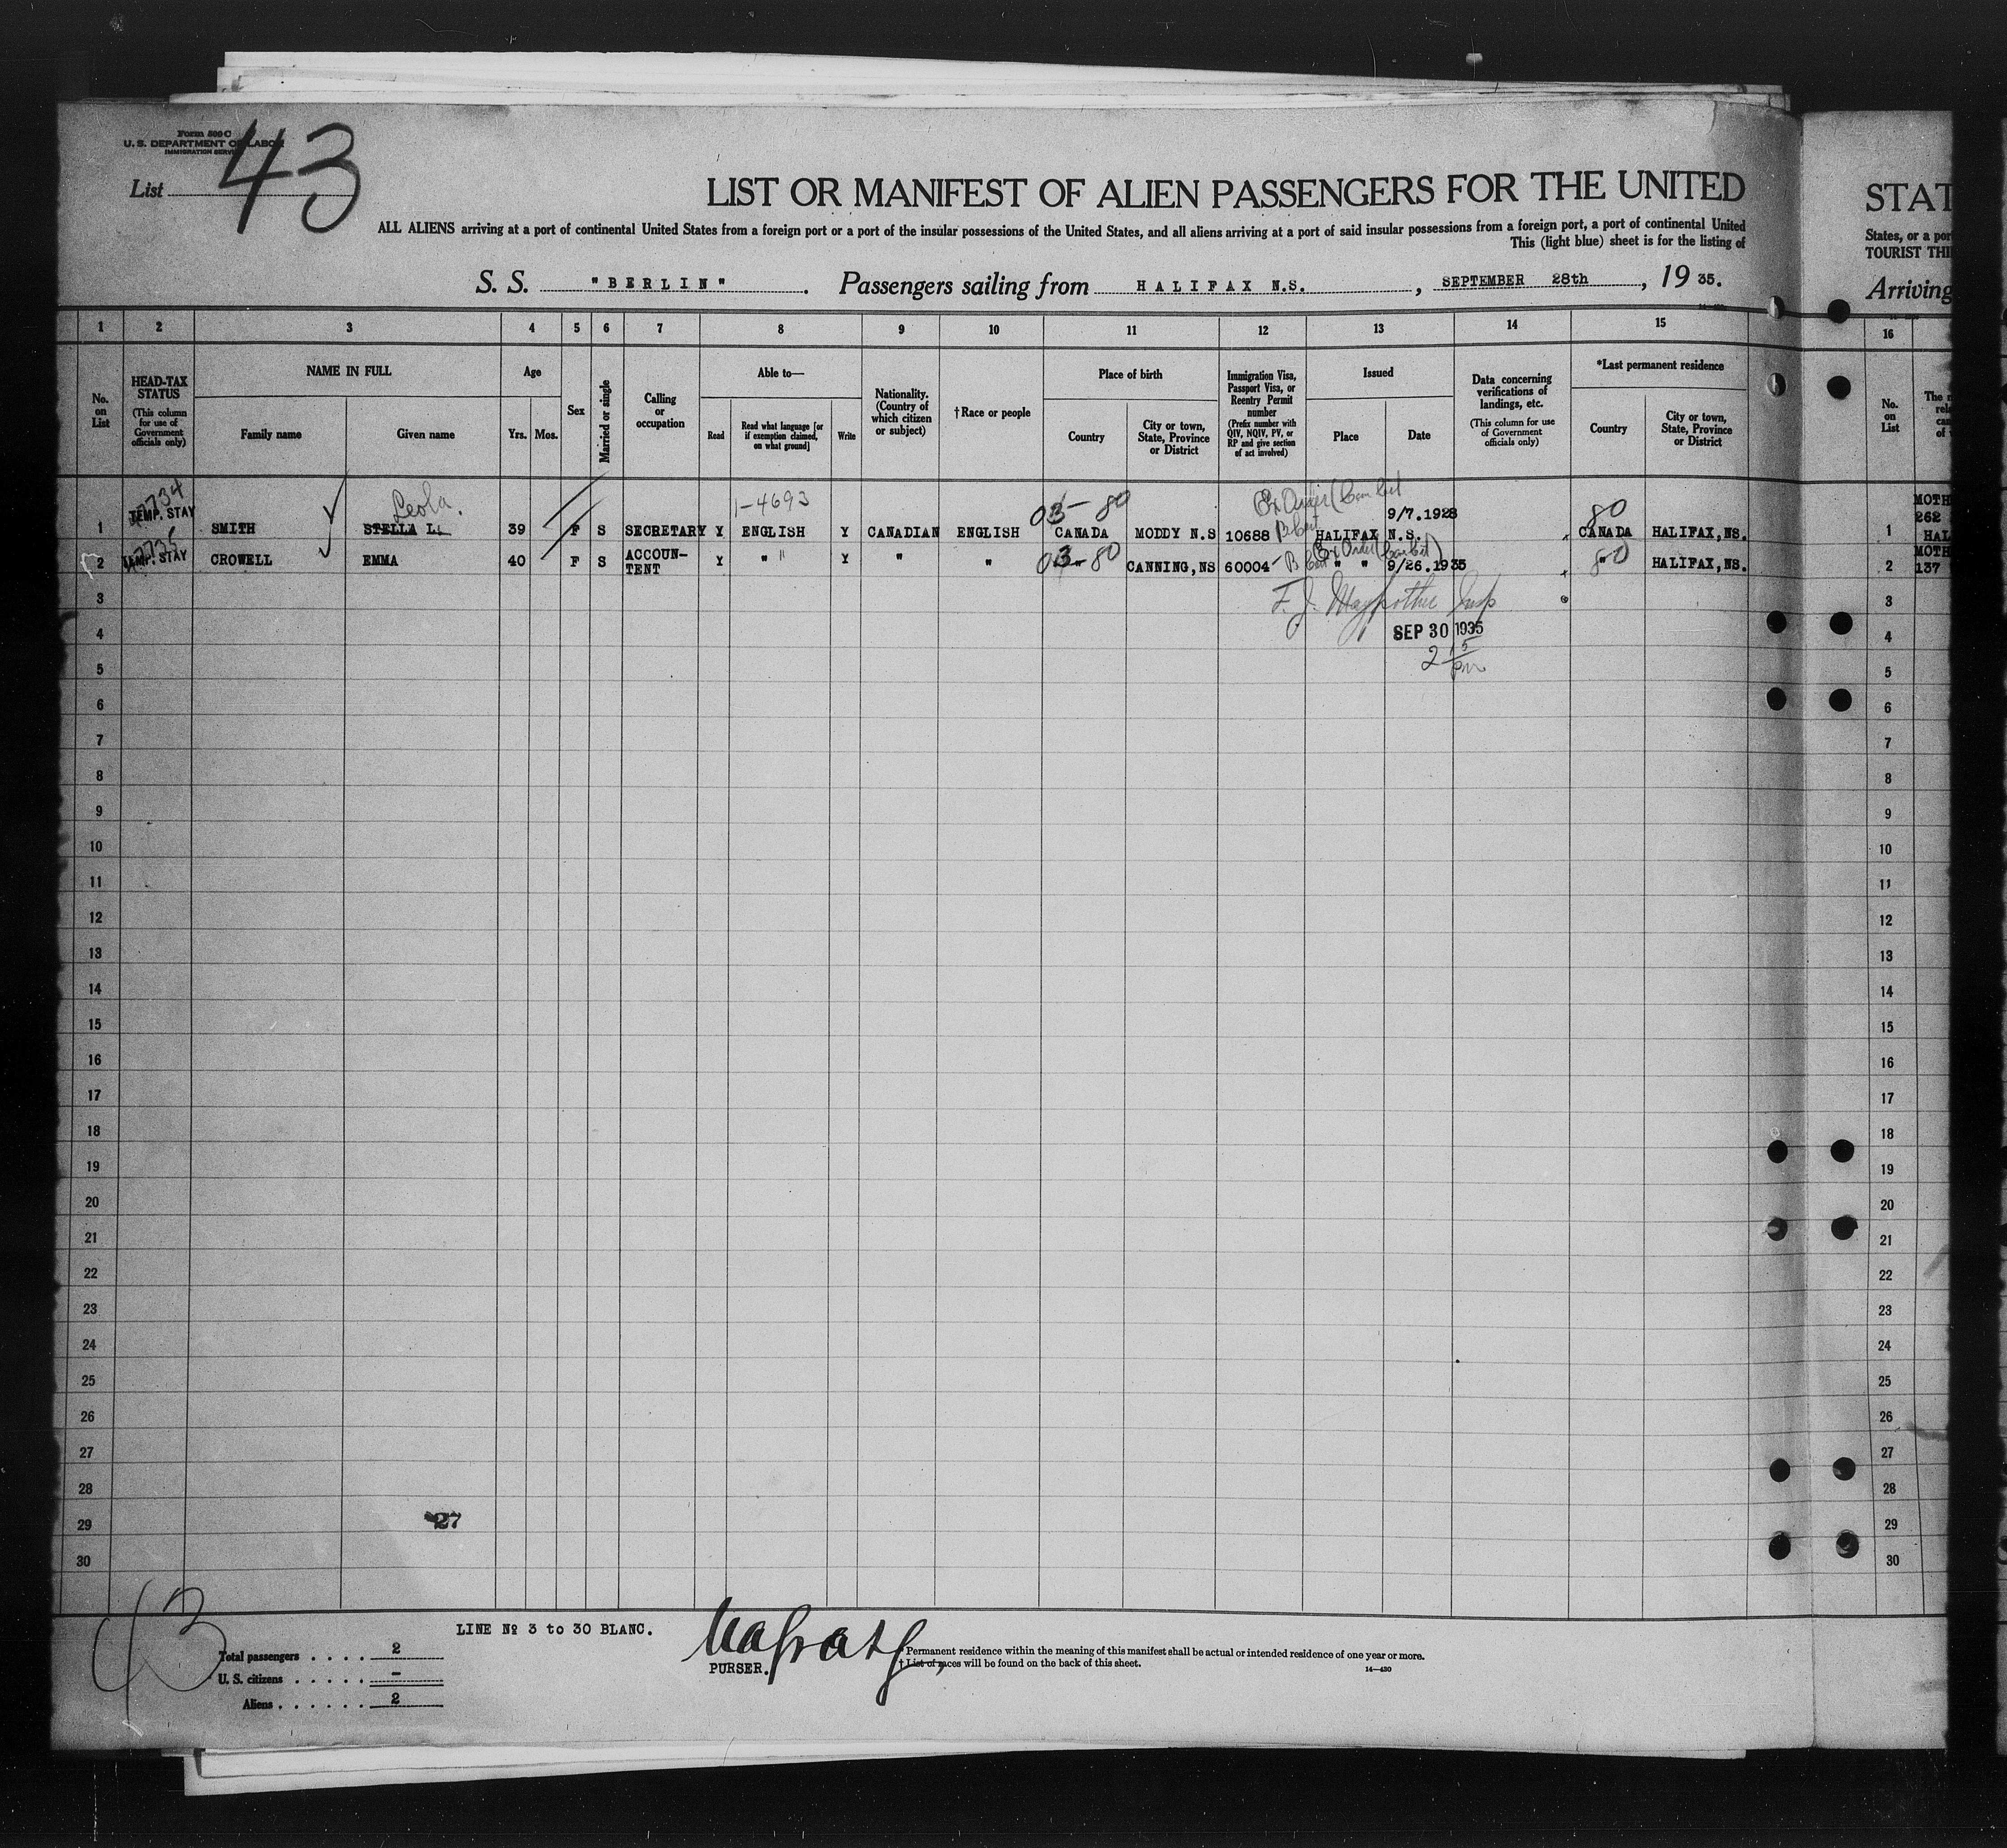 Form 500 C
U. S. DEPARTMENT OF LABOR
IMMIGRATION SERVICE
List 43
LIST OR MANIFEST OF ALIEN PASSENGERS FOR THE UNITED
ALL ALIENS arriving at a port of continental United States from a foreign port or a port of the insular possessions of the United States, and all aliens arriving at a port of said insular possessions from a foreign port, a port of continental United
This (light blue) sheet is for the listing of
S. S. "BERLIN". Passengers sailing from HALIFAX N.S., SEPTEMBER 28th, 19 35.
STAT
States, or a por
TOURIST THI
Arriving
1 2 3 4 5 6 7 8 9 10 11 12 13 14 15 16
No. on List
HEAD-TAX STATUS
(This column for use of Government officials only)
NAME IN FULL
Family name
Given name
Age
Yrs. Mos.
Sex
Married or single
Calling or occupation
Able to—
Read
Read what language [or if exemption claimed, on what ground]
Write
Nationality. (Country of which citizen or subject)
†Race or people
Place of birth
Country
City or town, State, Province or District
Immigration Visa, Passport Visa, or Reentry Permit number
(Prefix number with QIV, NQIV, PV, or RP and give section of act involved)
Issued
Place
Date
Data concerning verifications of landings, etc.
(This column for use of Government officials only)
*Last permanent residence
Country
City or town, State, Province or District
No. on List
Leola. 1-4693 03-80 80
1 TEMP. STAY SMITH STELLA L. 39 F S SECRETARY Y ENGLISH Y CANADIAN ENGLISH CANADA MODDY N.S 10688 HALIFAX N.S. 9/7.1928 CANADA HALIFAX,NS. 1
MOTH
262
HAL
2 TEMP. STAY CROWELL EMMA 40 F S ACCOUN-TENT Y " " Y " " 03-80 " CANNING,NS 60004 " " 9/26.1935 80 " HALIFAX,NS. 2
MOTH
137
3 3
SEP 30 1935
4 4
2 15/pm
5 5
6 6
7 7
8 8
9 9
10 10
11 11
12 12
13 13
14 14
15 15
16 16
17 17
18 18
19 19
20 20
21 21
22 22
23 23
24 24
25 25
26 26
27 27
28 28
29 27 29
30 30
43
LINE No 3 to 30 BLANC.
Total passengers . . . . 2
U. S. citizens . . . . . . –
Aliens . . . . . . 2
PURSER.
* Permanent residence within the meaning of this manifest shall be actual or intended residence of one year or more.
† List of races will be found on the back of this sheet.
14—430